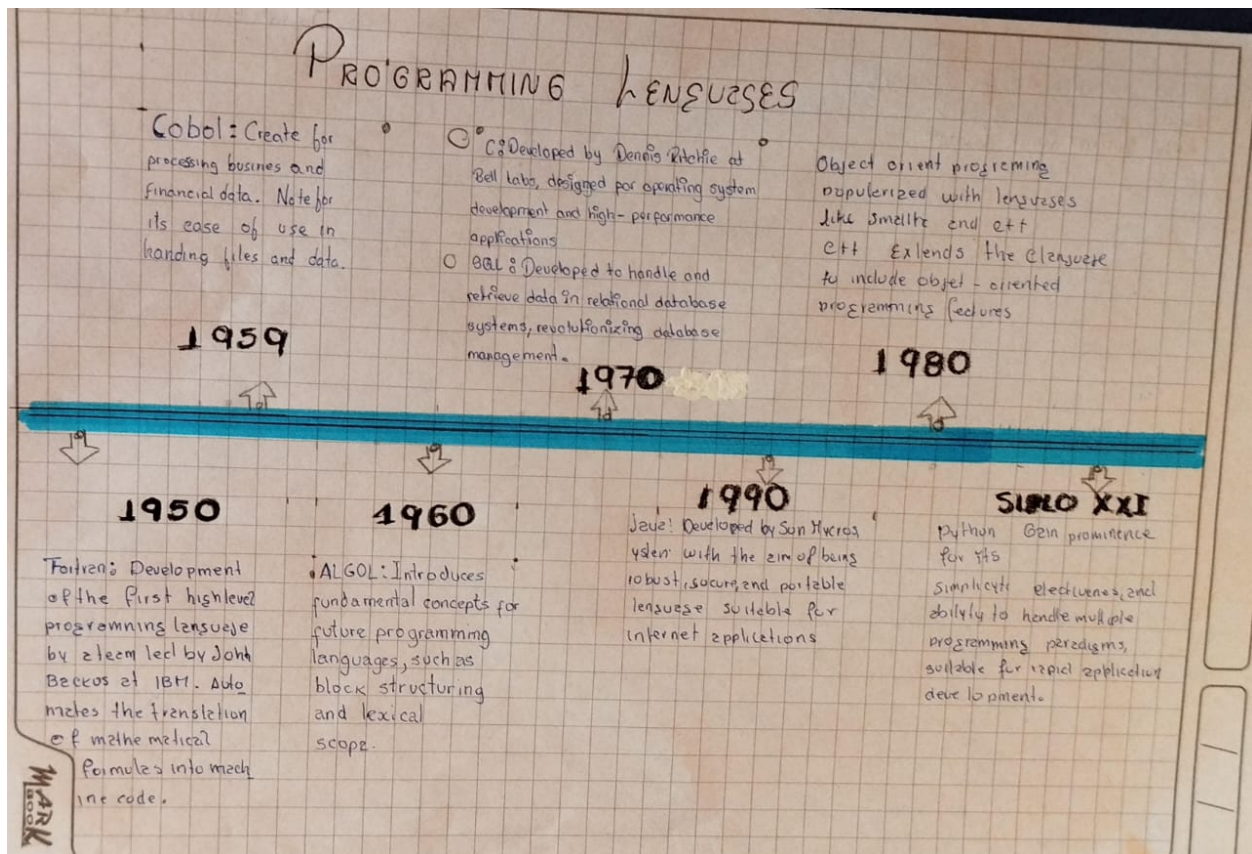 PROGRAMMING LENGUSGES
Cobol: Create for
processing busines and
financial data. Note for
its ease of use in
handing files and data.
1959
C: Developed by Dennis Ritchie at
Bell Labs, designed por operating system
development and high-performance
applications
SQL: Developed to handle and
retrieve data in relational database
systems, revolutionizing database
management.
1970
Object orient programing
popularized with lenguages
like smallte and c++
C++ Extends the C language
to include objet-oriented
programming features
1980
1950
Fortran: Development
of the first highlevel
programning language
by a team led by John
Backos at IBM. Auto
mates the translation
of mathematical
formulas into mach
ine code.
1960
ALGOL: Introduces
fundamental concepts for
future programming
languages, such as
block structuring
and lexical
scope.
1990
Java: Developed by Sun Mycros
ysten with the aim of being
robust, sucure, and portable
lenguage suitable for
internet applications
SIGLO XXI
python Gain prominence
for its
simplicyti electivenes, and
abilyty to handle multiple
programming paradigms,
suitable for rapid application
development.
MARK
BOOK